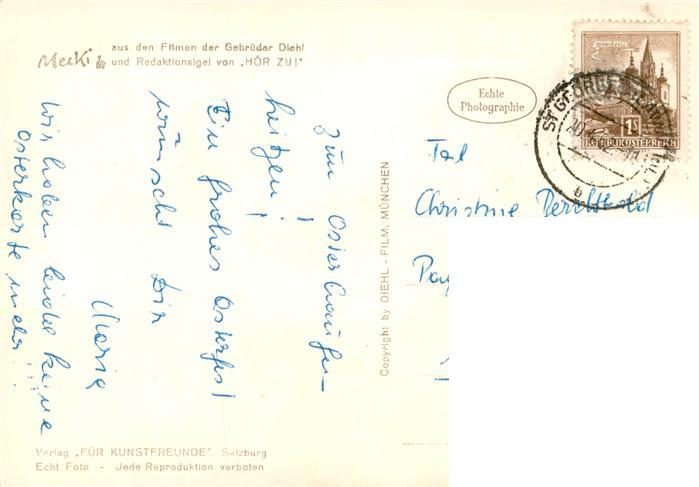 Mecki
aus den Filmen der Gebrüder Diehl
und Redaktionsigel von „HÖR ZU!"
Echte
Photographie
1S
REPUBLIK ÖSTERREICH
ST GEORGEN
Frl.
Christine
Copyright by DIEHL - FILM, MÜNCHEN
Zum Osterhaufen
heitzen!
Ein frohes Osterfest
wünscht Dir
Maria
Wir haben leider keine
Osterkarte mehr!!!
Verlag „FÜR KUNSTFREUNDE", Salzburg
Echt Foto - Jede Reproduktion verboten